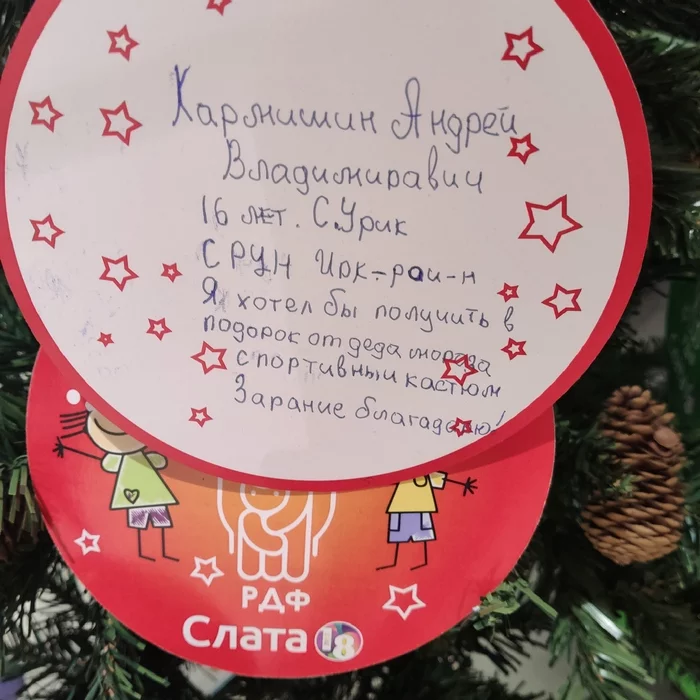 Кармишин Андрей
Владимиравич
16 лет. С.Урик
СРЦН Ирк-раи-н
Я хотел бы получить в
подорок от деда мороза
спортивныи кастюм
Зарание благадорю!
РДФ
Слата 18